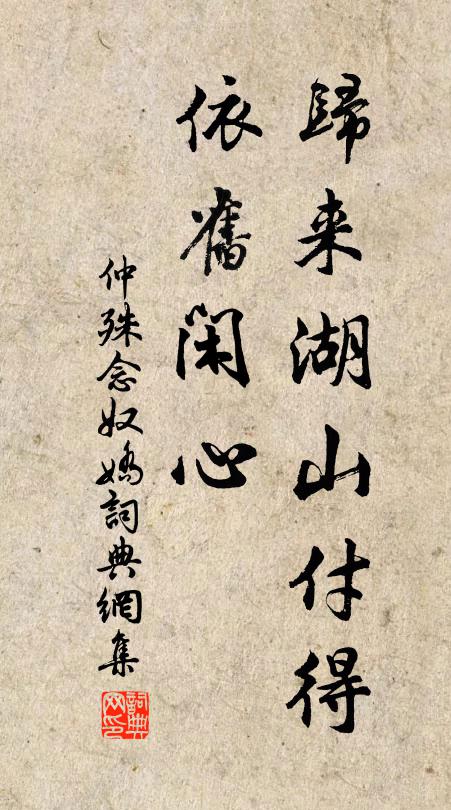 歸来湖山付得
依舊閑心
仲殊念奴嬌詞典網集
詞典
网印